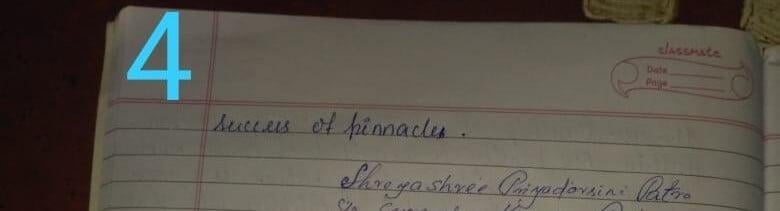 4
classmate
Date
Page
success of pinnacles.
Shreyashree Priyadarsini Patra